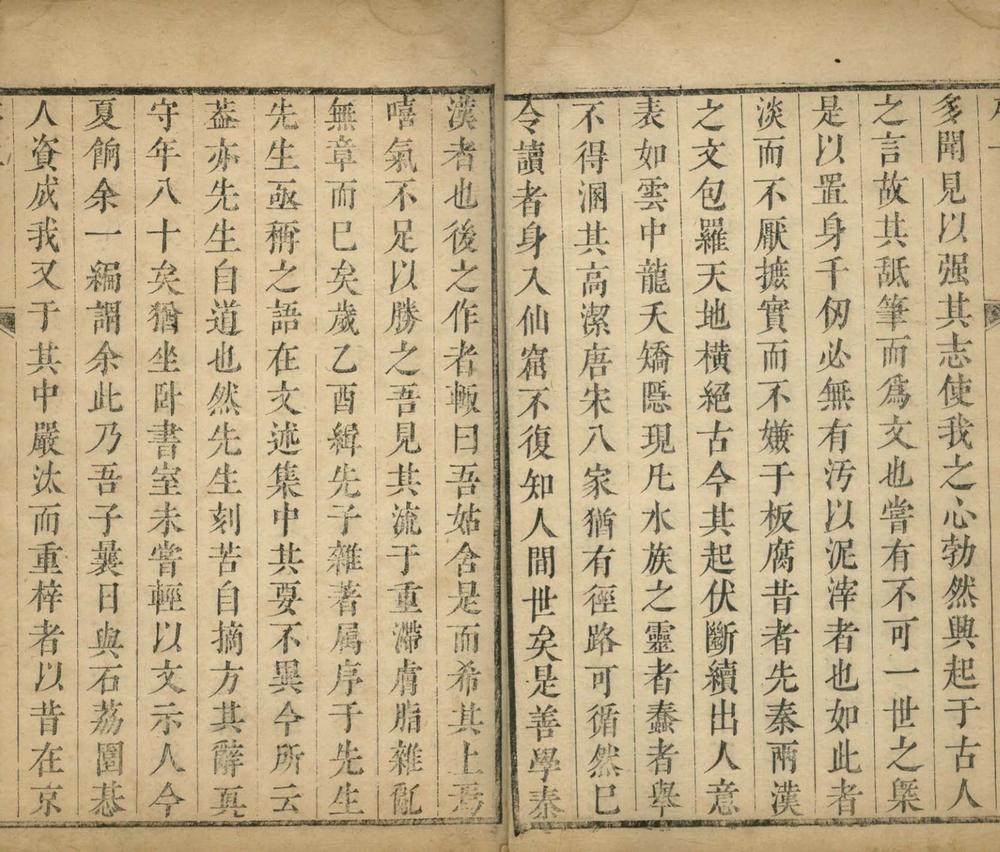 多聞見以强其志使我之心勃然興起于古人
之言故其舐筆而爲文也嘗有不可一世之槩
是以置身千仞必無有汚以泥滓者也如此者
淡而不厭摭實而不嫌于板腐昔者先秦兩漢
之文包羅天地橫絕古今其起伏斷續出人意
表如雲中龍夭矯隱現凡水族之靈者蠢者舉
不得溷其高潔唐宋八家猶有徑路可循然已
令讀者身入仙窟不復知人間世矣是善學秦
漢者也後之作者輙曰吾姑舍是而希其上焉
嘻氣不足以勝之吾見其流于重滯膚脂雜亂
無章而已矣歲乙酉緝先子雜著属序于先生
先生亟稱之語在文述集中其要不異今所云
葢亦先生自道也然先生刻苦自摘方其辭真
守年八十矣猶坐卧書室未嘗輕以文示人今
夏餉余一編謂余此乃吾子曩日與石荔園恭
人資成我又于其中嚴汰而重梓者以昔在京